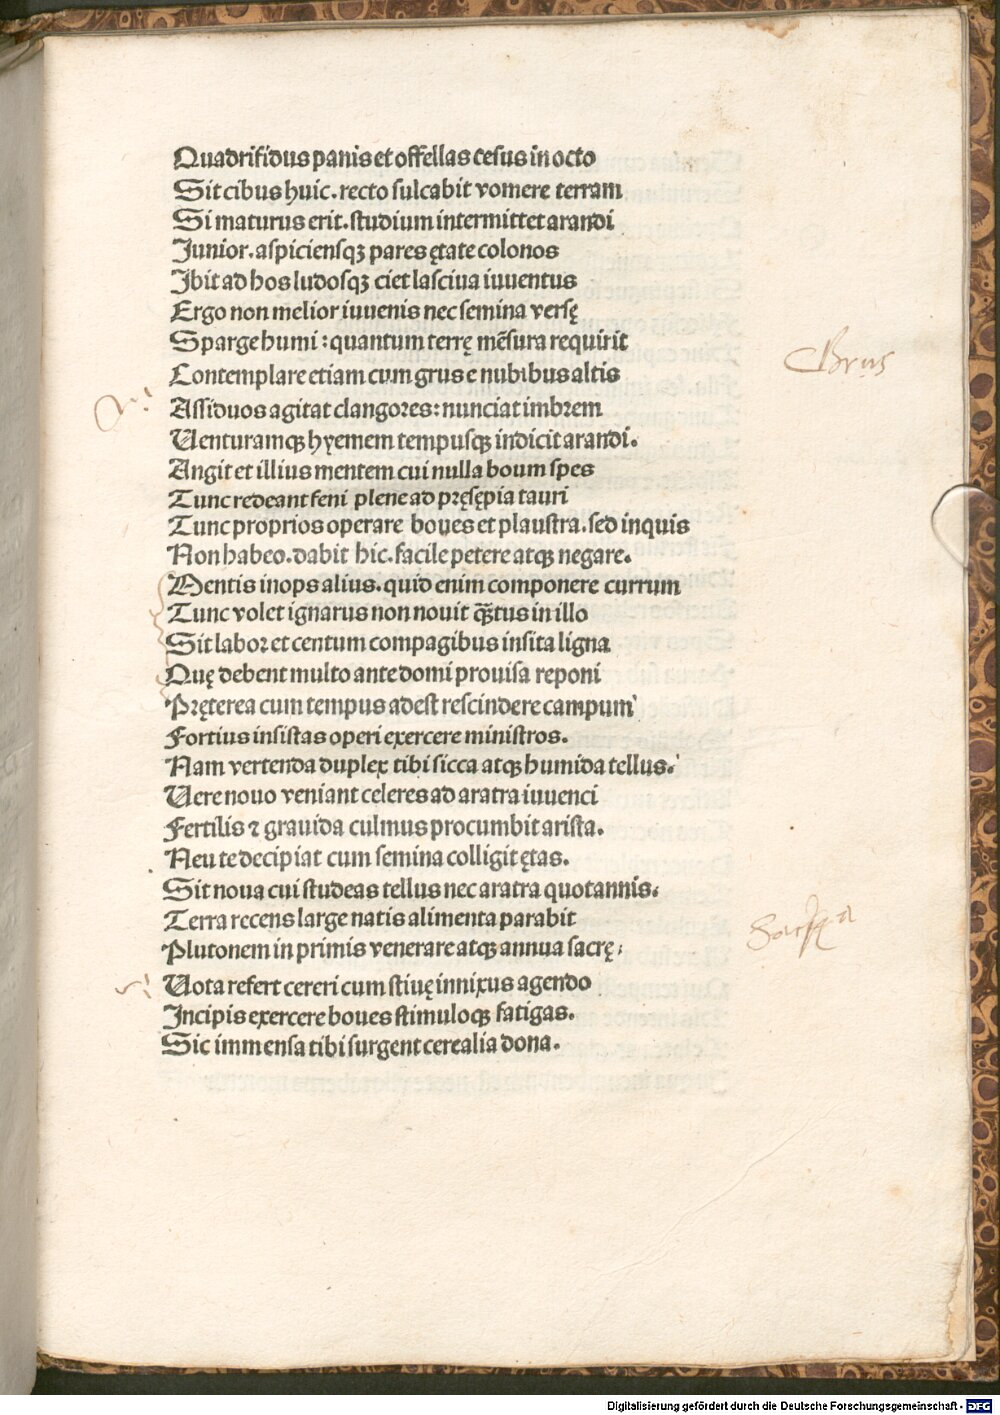 Quadrifidus panis et offellas cesus in octo
Sit cibus huic. recto sulcabit vomere terram
Si maturus erit. studium intermittet arandi
Junior. aspiciensqꝫ pares ętate colonos
Ibit ad hos ludosqꝫ ciet lasciua iuuentus
Ergo non melior iuuenis nec semina versę
Sparge humi : quantum terrę mẽsura requirit
Contemplare etiam cum grus e nubibus altis
Assiduos agitat clangores : nunciat imbrem
Uenturamqꝫ hyemem tempusqꝫ indicit arandi.
Angit et illius mentem cui nulla boum spes
Tunc redeant feni plene ad pręsępia tauri
Tunc proprios operare boues et plaustra. sed inquis
Non habeo. dabit hic. facile petere atqꝫ negare.
Mentis inops alius. quid enim componere currum
Tunc volet ignarus non nouit q̃tus in illo
Sit labor et centum compagibus insita ligna
Quę debent multo ante domi prouisa reponi
Pręterea cum tempus adest rescindere campum
Fortius insistas operi exercere ministros.
Nam vertenda duplex tibi sicca atqꝫ humida tellus.
Uere nouo veniant celeres ad aratra iuuenci
Fertilis ⁊ grauida culmus procumbit arista.
Neu te decipiat cum semina colligit ętas.
Sit noua cui studeas tellus nec aratra quotannis.
Terra recens large natis alimenta parabit
Plutonem in primis venerare atqꝫ annua sacrę;
Uota refert cereri cum stiuę innixus agendo
Incipis exercere boues stimuloqꝫ fatigas.
Sic immensa tibi surgent cerealia dona.
Grus
Digitalisierung gefördert durch die Deutsche Forschungsgemeinschaft - DFG